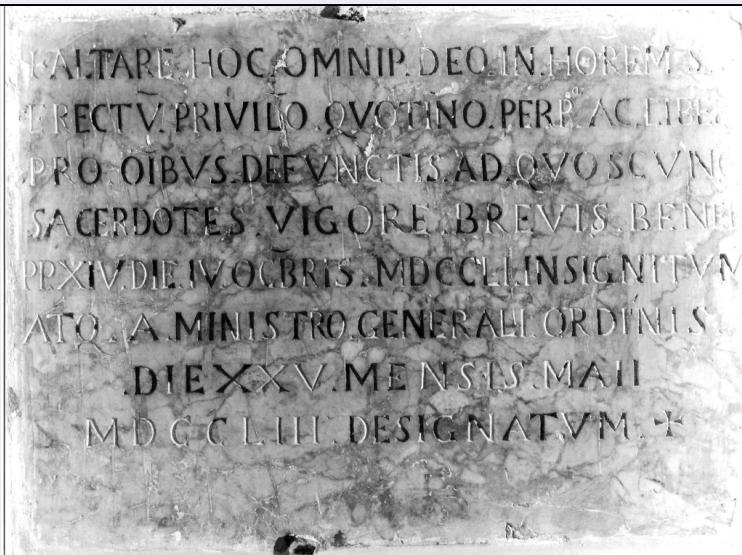 ALTARE.HOC.OMNIP.DEO.IN.HOREM.S.
ERECTV̄.PRIVILO.QVOTINO.PERP.AC.LIBE
PRO.OIBVS.DEFVNCTIS.AD.QVOSCVNQ
SACERDOTES.VIGORE.BREVIS.BENE
PP.XIV.DIE.IV.OCBRIS.MDCCLI.INSIGNITVM
ATQ.A.MINISTRO.GENERALI.ORDINIS
.DIE XXV.MENSIS.MAII
MDCCLIII.DESIGNATVM.+